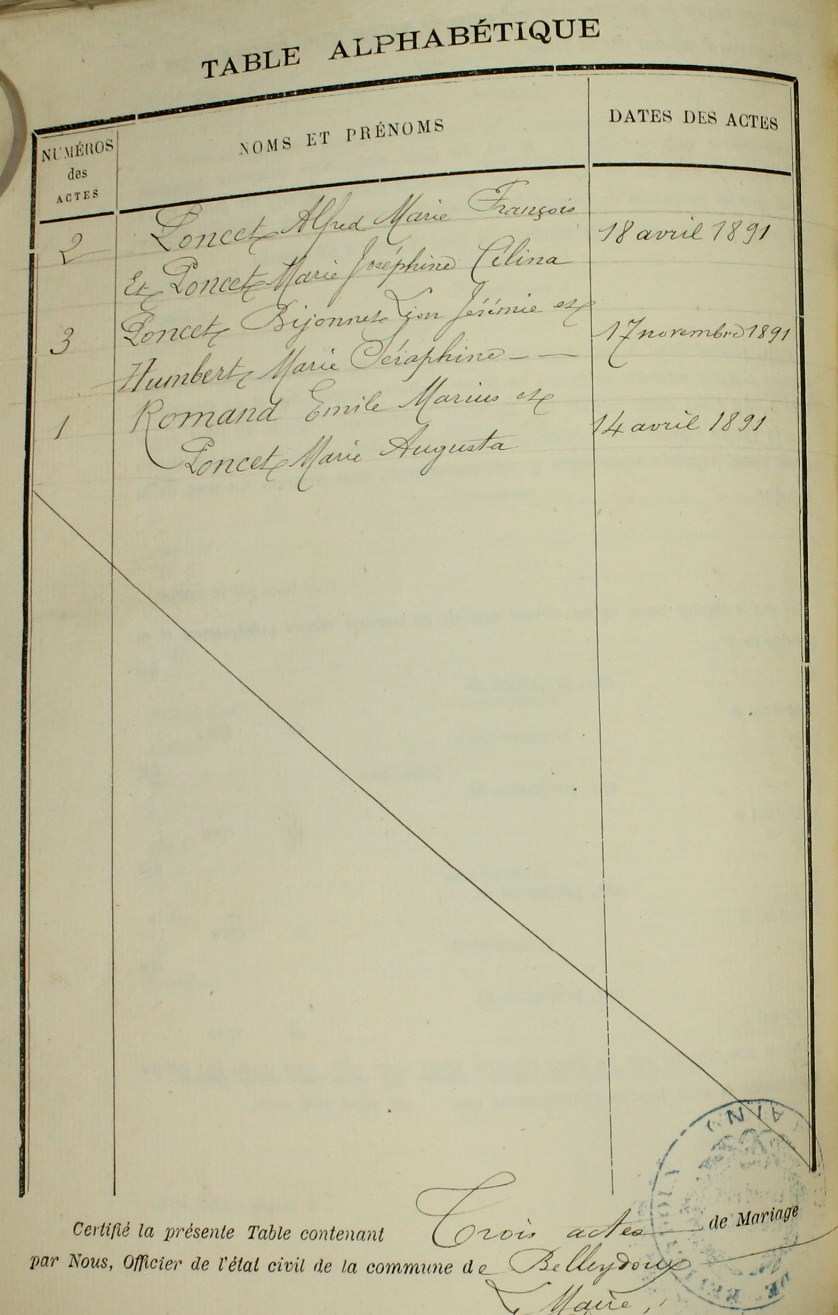 TABLE ALPHABÉTIQUE
NUMÉROS des ACTES NOMS ET PRÉNOMS DATES DES ACTES
2 Poncet Alfred Marie François 18 avril 1891
Et Poncet Marie Joséphine Célina
3 Poncet Bijonnet Léon Jérémie et 17 novembre 1891
Humbert Marie Séraphine
1 Romand Emile Marius et 14 avril 1891
Poncet Marie Augusta
Certifié la présente Table contenant Trois actes de Mariage
par Nous, Officier de l'état civil de la commune de Belleydoux
Le Maire,
(AIN)